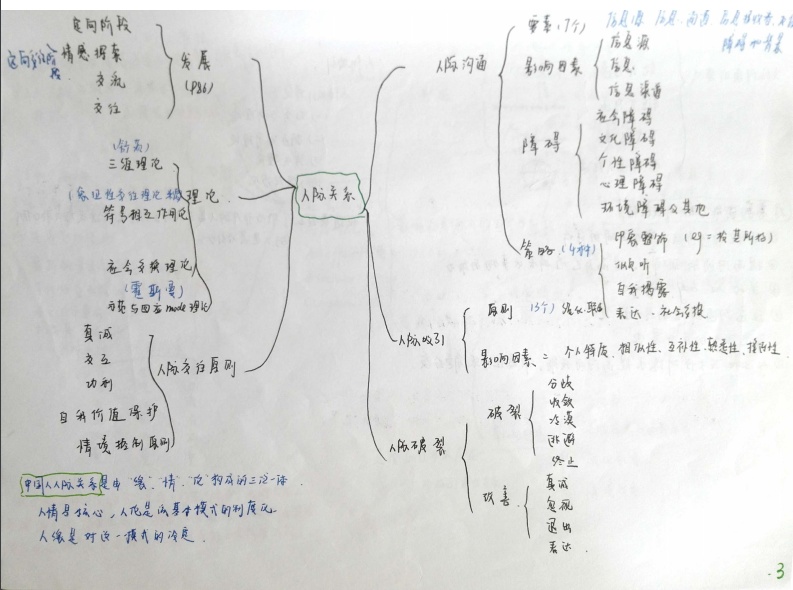 人际关系
发展
(1986)
定向阶段
情感探索
交流
交往
理论
(舒茨)
三维理论
符号相互作用论
社会交换理论
(霍斯曼)
人际交往原则
真诚
交互
功利
自我价值保护
情境控制原则
人际沟通
要素(7个)
信息源、信息、
障碍和背景
影响因素
信息源
信息
信息渠道
障碍
社会障碍
文化障碍
个性障碍
心理障碍
环境障碍及其他
策略(4种)
印象整饰
倾听
自我揭露
表达
人际吸引
原则
影响因素=个人特质、相似性、互补性、熟悉性、接近性
人际破裂
破裂
分歧
收敛
冷漠
逃避
终止
改善
真诚
忽视
退出
表达
中国人人际关系是由“缘”、“情”、“伦”构成的三位一体
人情是核心,人伦是该基本模式的制度化
人缘是对这一模式的设定.
3